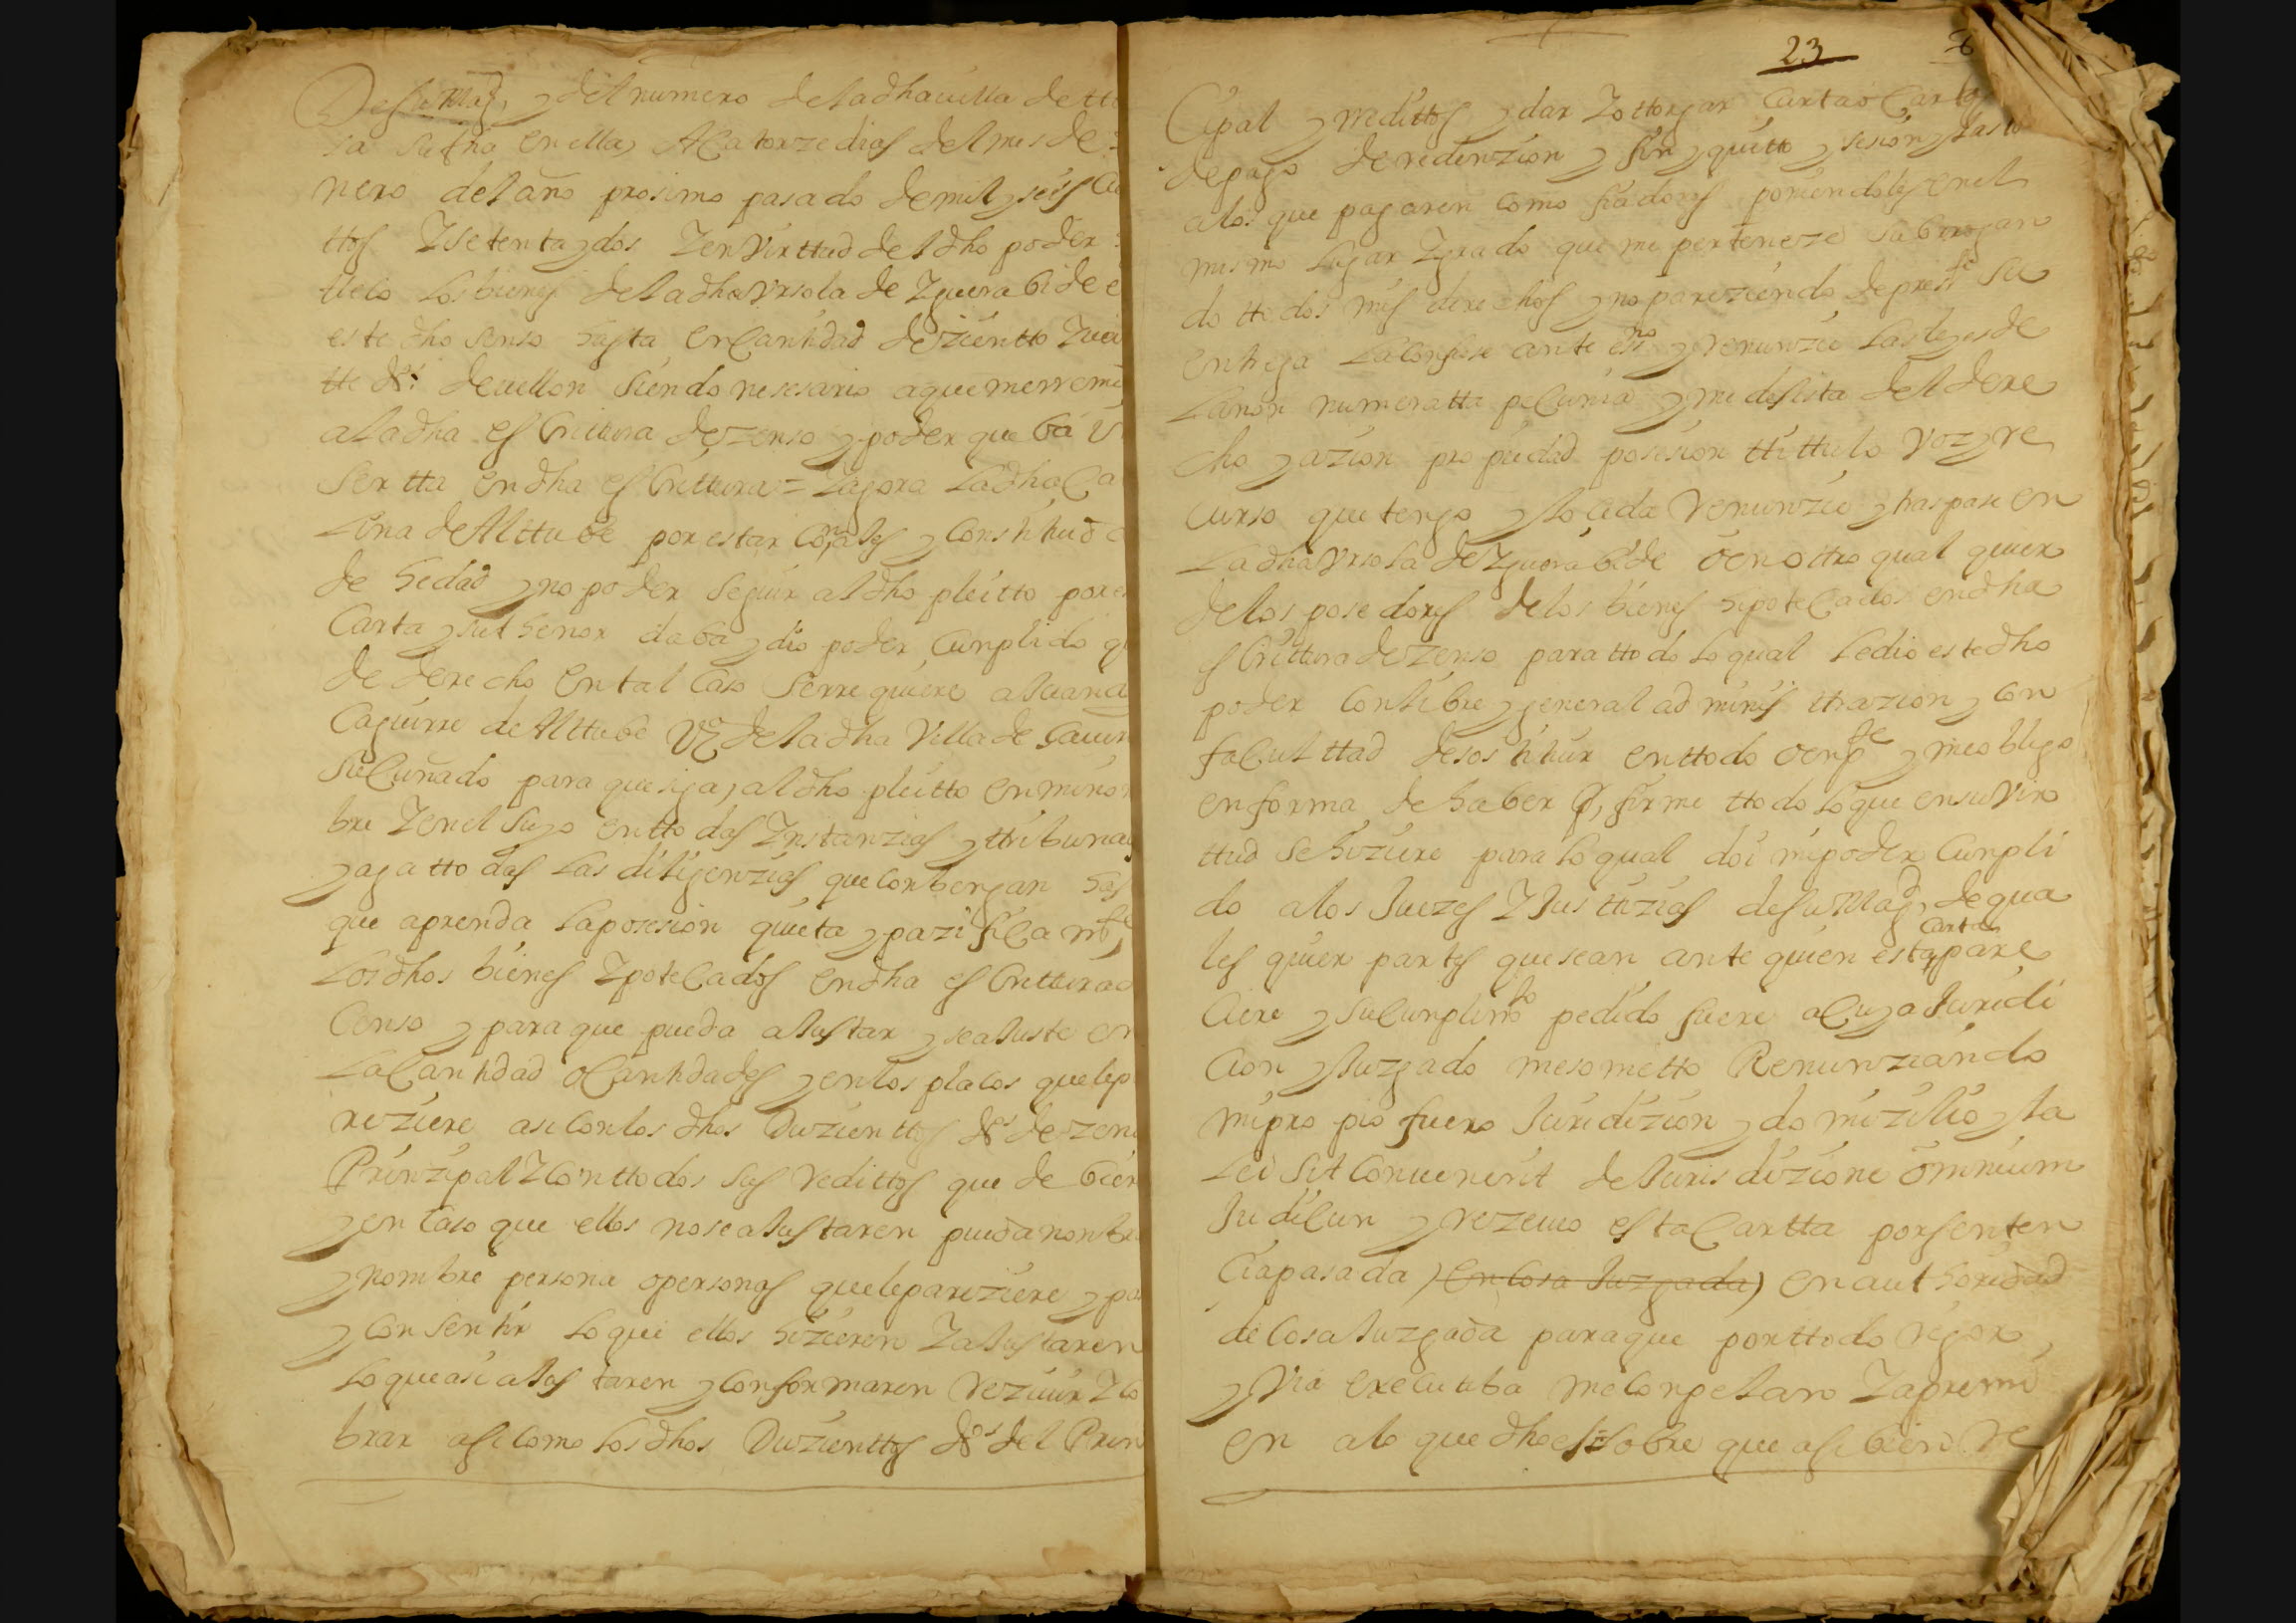 De su Mag, y del numero de la dha villa de
sa su fha en ella, A Catorze dias del mes de
nero del año prosimo pasado de mil y seis
ttos Z setenta y dos Z en Virttud del dho poder
los bienes de la dha Vrsola de Zguerabide
este dho senso hasta en Cantidad de zientto
de vellon siendo nesesario aque me rremi
a la dha es Crittura de zenso y poder que ba
sertta en dha es Crittura = Z agora la dha Ca
Lina de Alttube por estar y Constituid
de hedad y no poder seguir al dho pleitto por
Carta y su thenor daba y dio poder Cunplido
de derecho en tal Caso se rrequiere a
Caguirre de Alttube Vº de la dha Villa de
su Cuñado para que siga, al dho pleitto en mi no
bre Z en el suyo en tto das Znstanzias y ttribunal
y aga tto das las diligenzias que Conbengan has
que aprenda la posesion quieta y pazi fiCa
Los dhos bienes ZpoteCados en dha es Crittura
Censo y para que pueda aJustar y se aJuste en
La Cantidad o Cantidades y en los plaços que le
reziere asi Con los dhos Duzienttos de zens
Prinzipal Z Con ttodos sus redittos que de bier
y en Caso que ellos no se aJustaren pueda nonbr
y nombre persona o personas que le pareziere y pa
y Consentir lo que ellos hizieren Z aJustaren
lo que asi aJustaren y Conformaren Reziuir Z Co
brar asi Como los dhos Duzienttos del Prin
23
Cipal y redittos y dar Z ottorgar Carta o Cartas
de pago de redenzion y fin y quitto y sesion y lasto
a los que pagaren Como fiadores poniendoles en el
mismo lugar Z grado que me perteneze subrrogan
do ttodos mis derechos y no pareziendo de presste su
entrega la Confiese ante essno y renunzie las leyes de
La non numeratta peCunia y me desista del dere
cho y azion propiedad posesion ttittulo Voz y re
Curso que tengo y lo ceda Renunzie y traspase en
La dha Vrsola de Zguerabide o en ottro qual quier
de los posedores de los bienes hipoteCados en dha
es Crittura de zenso para ttodo lo qual le dio este dho
poder Con libre y general ad minis ttrazion y Con
faCulttad de sos tituir en ttodo o en pte y me obligo
en forma de haber firme ttodo lo que en su Vir
ttud se hiziere para lo qual doi mi poder Cunpli
do a los Juezes Z Justtizias de su Magd, de qua
les quier partes que sean ante quien esta Carta pare
Ciere y su Cunplimto pedido fuere a Cuya Juridi
Cion y Juzgado me sometto Renunziando
mi propio fuero Juridizion y domizilio y la
Lei sit Conuenerit de Juris dizione omnium
JudiCun y rezeuo esta Cartta por senten
Cia pasada ) en Cosa Juzgada) en authoridad
de Cosa Juzgada para que por ttodo rigor
y Via executiba me Conpelan Z apremi
en a lo que dho es sobre que asi bien Re